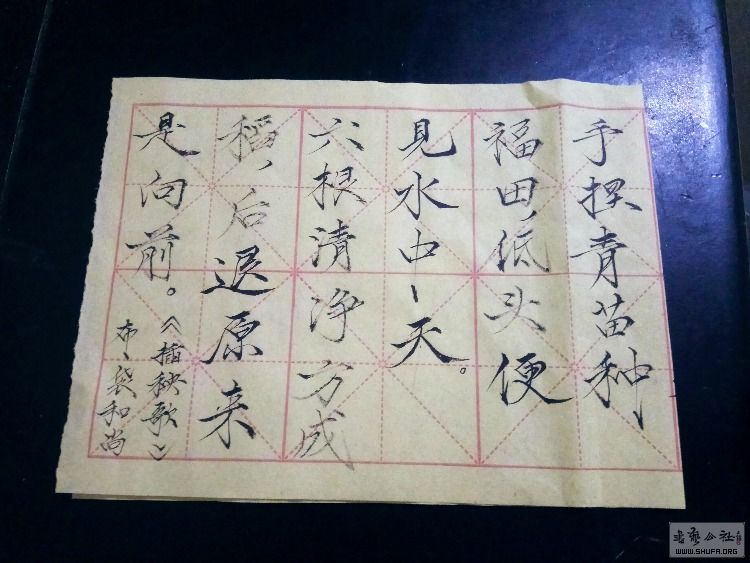 手捏青苗种
福田，低头便
見水中、天。
六根清净方成
稻，后退原来
是向前。
《插秧歌》
布、袋和尚
书艺公社
WWW.SHUFA.ORG